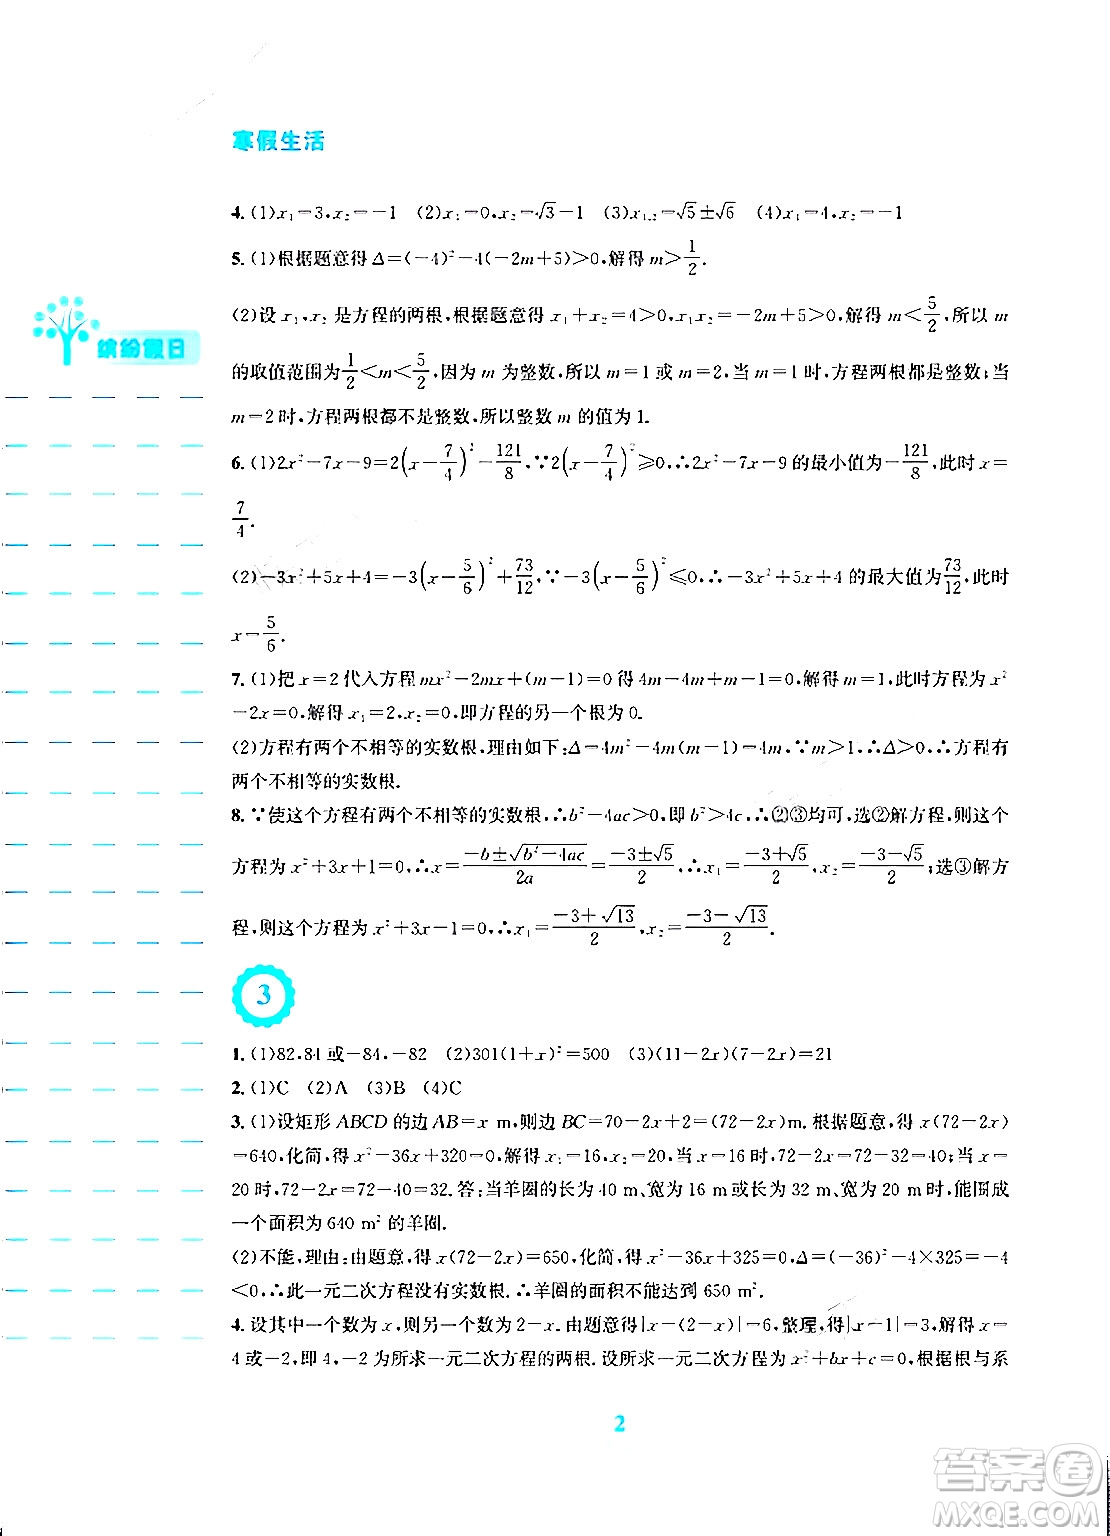 寒假生活
4. (1)x₁=3,x₂=-1 (2)x₁=0,x₂=√3-1 (3)x₁,₂=√5±√6 (4)x₁=4,x₂=-1
5. (1)根据题意得 Δ=(-4)²-4(-2m+5)>0,解得 m>1/2.
(2)设 x₁,x₂ 是方程的两根,根据题意得 x₁+x₂=4>0,x₁x₂=-2m+5>0,解得 m<5/2,所以 m
缤纷假日
的取值范围为1/2<m<5/2,因为 m 为整数,所以 m=1 或 m=2,当 m=1 时,方程两根都是整数;当
m=2 时,方程两根都不是整数,所以整数 m 的值为 1.
6. (1)2x²-7x-9=2(x-7/4)²-121/8,∵2(x-7/4)²≥0,∴2x²-7x-9 的最小值为-121/8,此时 x=
7/4.
(2)-3x²+5x+4=-3(x-5/6)²+73/12,∵-3(x-5/6)²≤0,∴-3x²+5x+4 的最大值为73/12,此时
x=5/6.
7. (1)把 x=2 代入方程 mx²-2mx+(m-1)=0 得 4m-4m+m-1=0,解得 m=1,此时方程为 x²
-2x=0,解得 x₁=2,x₂=0,即方程的另一个根为 0.
(2)方程有两个不相等的实数根,理由如下:Δ=4m²-4m(m-1)=4m,∵m>1,∴Δ>0,∴方程有
两个不相等的实数根.
8. ∵使这个方程有两个不相等的实数根,∴b²-4ac>0,即 b²>4c,∴②③均可,选②解方程,则这个
方程为 x²+3x+1=0,∴x=(-b±√(b²-4ac))/2a=(-3±√5)/2,∴x₁=(-3+√5)/2,x₂=(-3-√5)/2;选③解方
程,则这个方程为 x²+3x-1=0,∴x₁=(-3+√13)/2,x₂=(-3-√13)/2.
3
1. (1)82,84 或-84,-82 (2)301(1+x)²=500 (3)(11-2x)(7-2x)=21
2. (1)C (2)A (3)B (4)C
3. (1)设矩形 ABCD 的边 AB=x m,则边 BC=70-2x+2=(72-2x)m.根据题意,得 x(72-2x)
=640,化简,得 x²-36x+320=0,解得 x₁=16,x₂=20,当 x=16 时,72-2x=72-32=40;当 x=
20 时,72-2x=72-40=32.答:当羊圈的长为 40 m、宽为 16 m 或长为 32 m、宽为 20 m 时,能围成
一个面积为 640 m² 的羊圈.
(2)不能,理由:由题意,得 x(72-2x)=650,化简,得 x²-36x+325=0,Δ=(-36)²-4×325=-4
<0,∴此一元二次方程没有实数根.∴羊圈的面积不能达到 650 m².
4. 设其中一个数为 x,则另一个数为 2-x.由题意得|x-(2-x)|=6,整理,得|x-1|=3,解得 x=
4 或-2,即 4,-2 为所求一元二次方程的两根.设所求一元二次方程为 x²+bx+c=0,根据根与系
2
答案圈
MXQE.COM